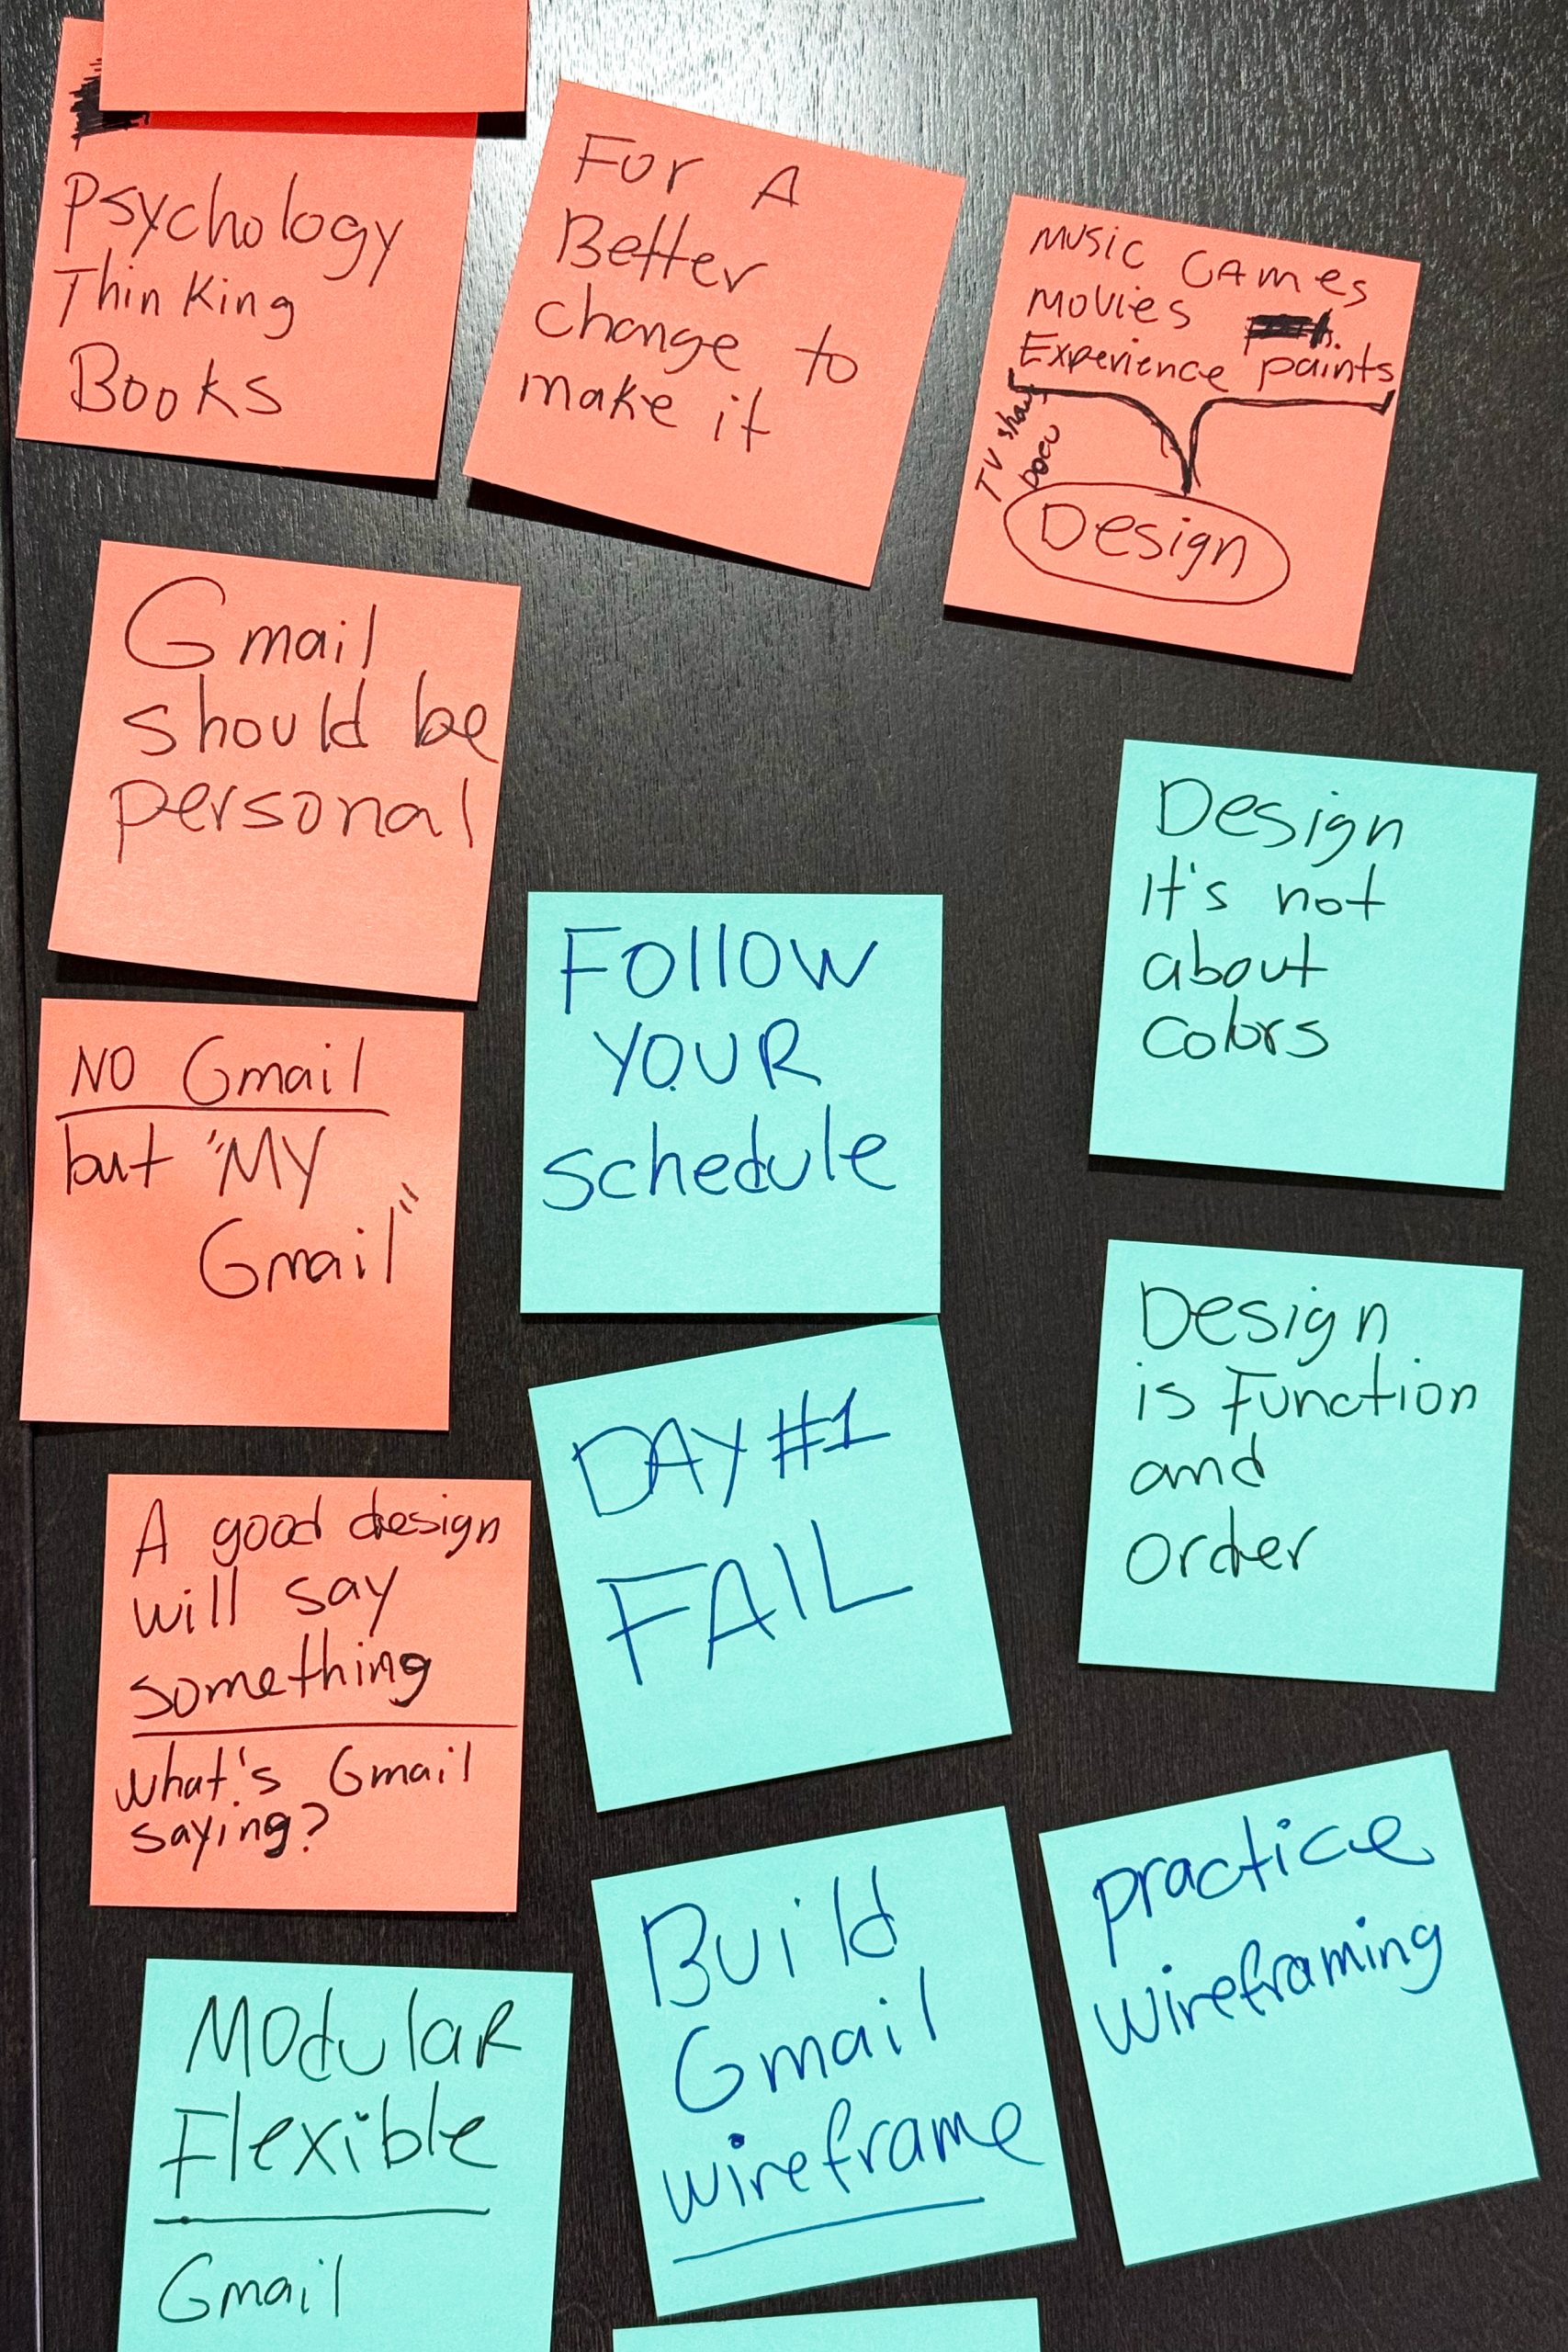 Psychology
Thinking
Books
For A
Better
change to
make it
Music Games
Movies
Experience paints
TV show
Docu
Design
Gmail
should be
personal
Design
It's not
about
colors
Follow
YOUR
schedule
NO Gmail
but "MY
Gmail"
Design
is Function
and
order
DAY #1
FAIL
A good design
will say
something
what's Gmail
saying?
Build
Gmail
wireframe
practice
wireframing
MOdulaR
Flexible
Gmail